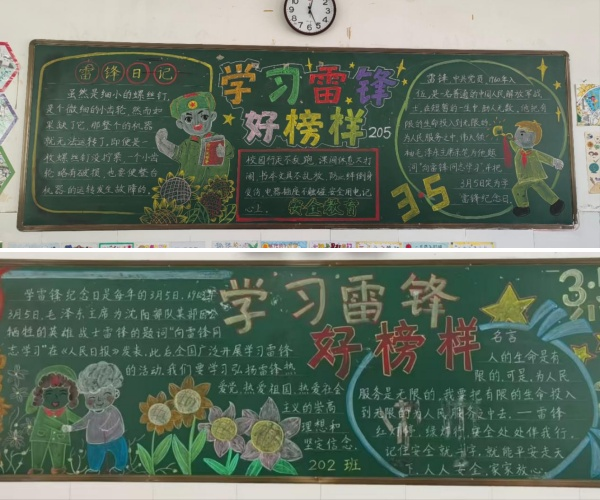 雷锋日记
虽然是细小的螺丝钉,
是个微细的小齿轮,然而如
果缺了它,那整个的机器
就无法运转了,即使是一
枚螺丝钉没拧紧,一个小齿
轮略有破损,也要使整台
机器的运转发生故障的。
学习雷锋
好榜样
205
校园行走不乱跑 课间休息不打
闹 书本文具不乱放
安全教育
3.5
雷锋,中共党员,1940年入
伍,是一名普通的中国人民解放军战
士,在短暂的一生中助人无数,他把有
限的生命投入到无限的
为人民服务之中,伟大领
袖毛泽东主席亲笔为他题
词“向雷锋同志学习”并把
3月5日定为学
雷锋纪念日。
学雷锋纪念日是每年的3月5日,1963年
3月5日,毛泽东主席为沈阳部队某部因公
牺牲的英雄战士雷锋的题词“向雷锋同
志学习”在《人民日报》发表,此后全国广泛开展学习雷锋
的活动,我们要学习弘扬雷锋热
爱党,热爱祖国,热爱社会
主义的崇高
理想和
坚定信念。
202 班
学习雷锋
好榜样
3.
名言
人的生命是有
限的,可是,为人民
服务是无限的,我要把有限的生命投入
到无限的为人民服务之中去。——雷锋
红灯停,绿灯行,安全处处伴我行。
记住安全就一字,就能平安走天
下,人人安全,家家放心。